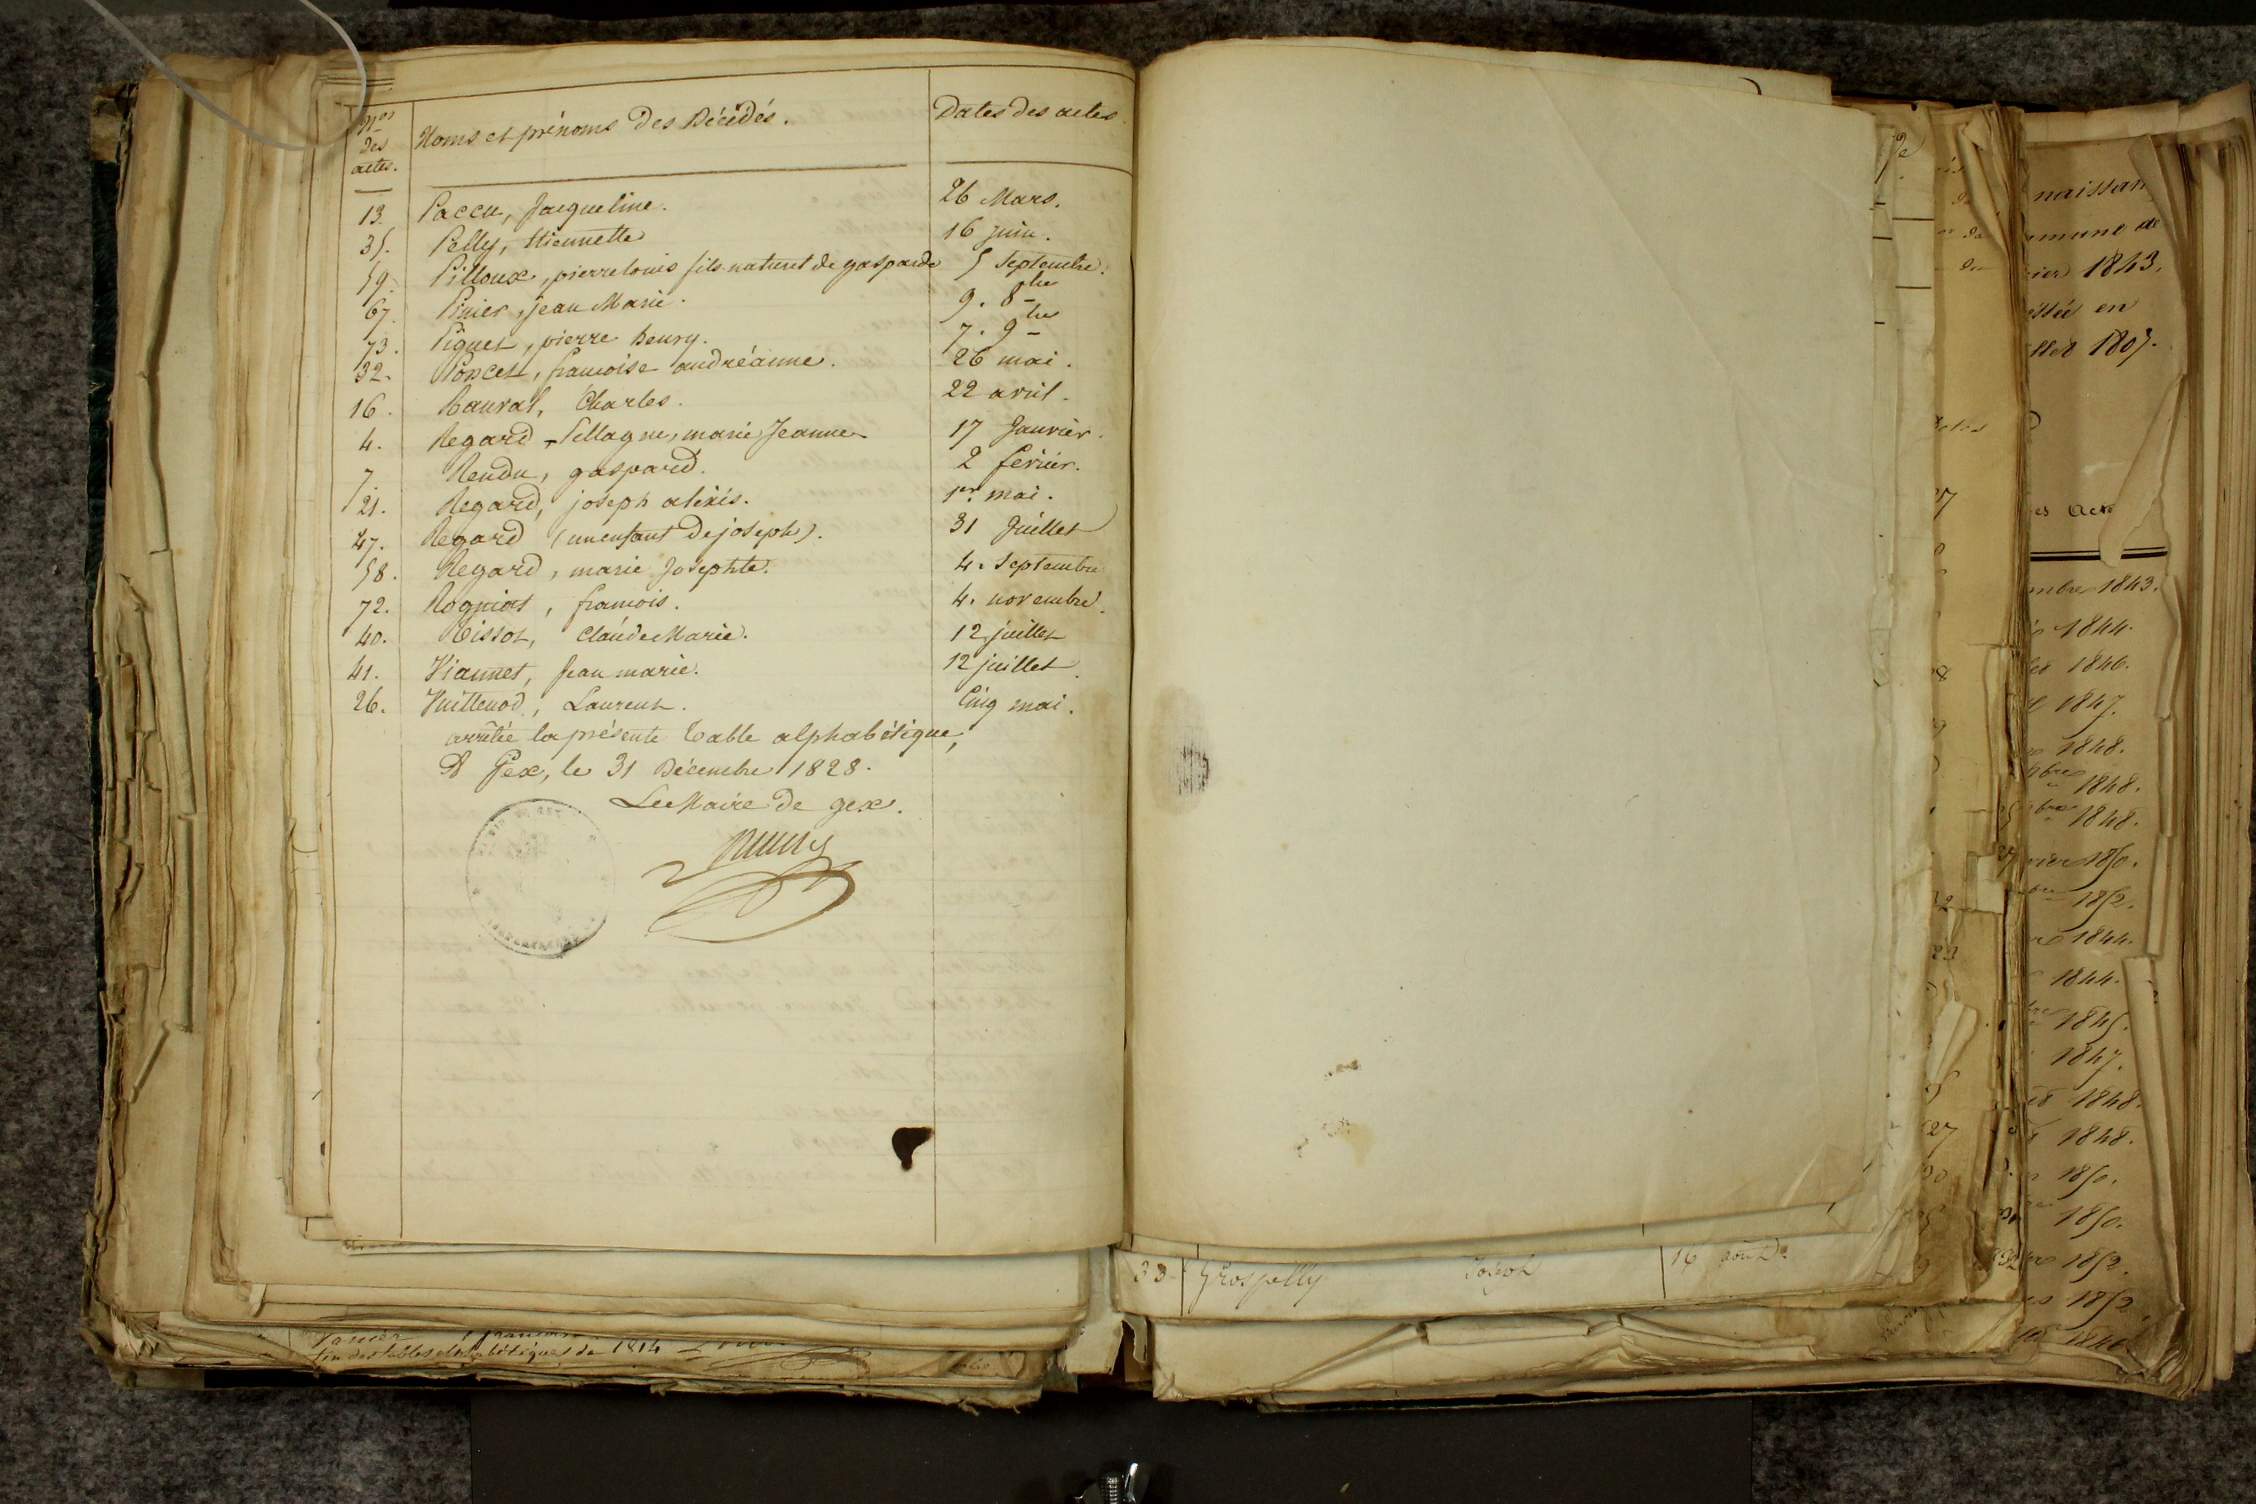 Nos des actes. Noms et prénoms des Décédés. Dates des actes
13. Paccu, Jacqueline. 26 Mars.
35. Pelly, Etiennette 16 juin.
59. Pilloux, pierre louis fils naturel de gasparde 5 Septembre.
67. Pinier, Jean Marie. 9. 8bre
73. Piquet, pierre henry. 7. 9bre
32. Poncet, francoise andréanne. 26 mai.
16. Charles. 22 avril.
4. Regard - Pellagru, marie Jeanne 17 Janvier.
7. Rendu, gaspard. 2 fevrier.
21. Regard, joseph alexis. 1er mai.
47. Regard (un enfant de joseph). 31 Juillet
58. Regard, marie Josephte. 4. Septembre
72. Rogniat, francois. 4. novembre.
40. Tissot, Claude Marie. 12 juillet
41. Viannet, Jean marie. 12 juillet.
26. Vuillenod, Laurent. Cinq mai.
arrêtée la présente table alphabétique,
A Gex, le 31 Décembre 1828.
Le Maire de gex.
33 Grospelly Joseph 16
fin des tables alphabétiques de 1814
naissan
mune de
rier 1843.
en
1807.
es Acte
mbre 1843.
1844.
1846.
1847.
1848.
bre 1848.
bre 1848.
vier 1850.
bre 1852.
1844.
1844.
1845.
1847.
1848.
1848.
1850.
1850.
1852.
1852
1846